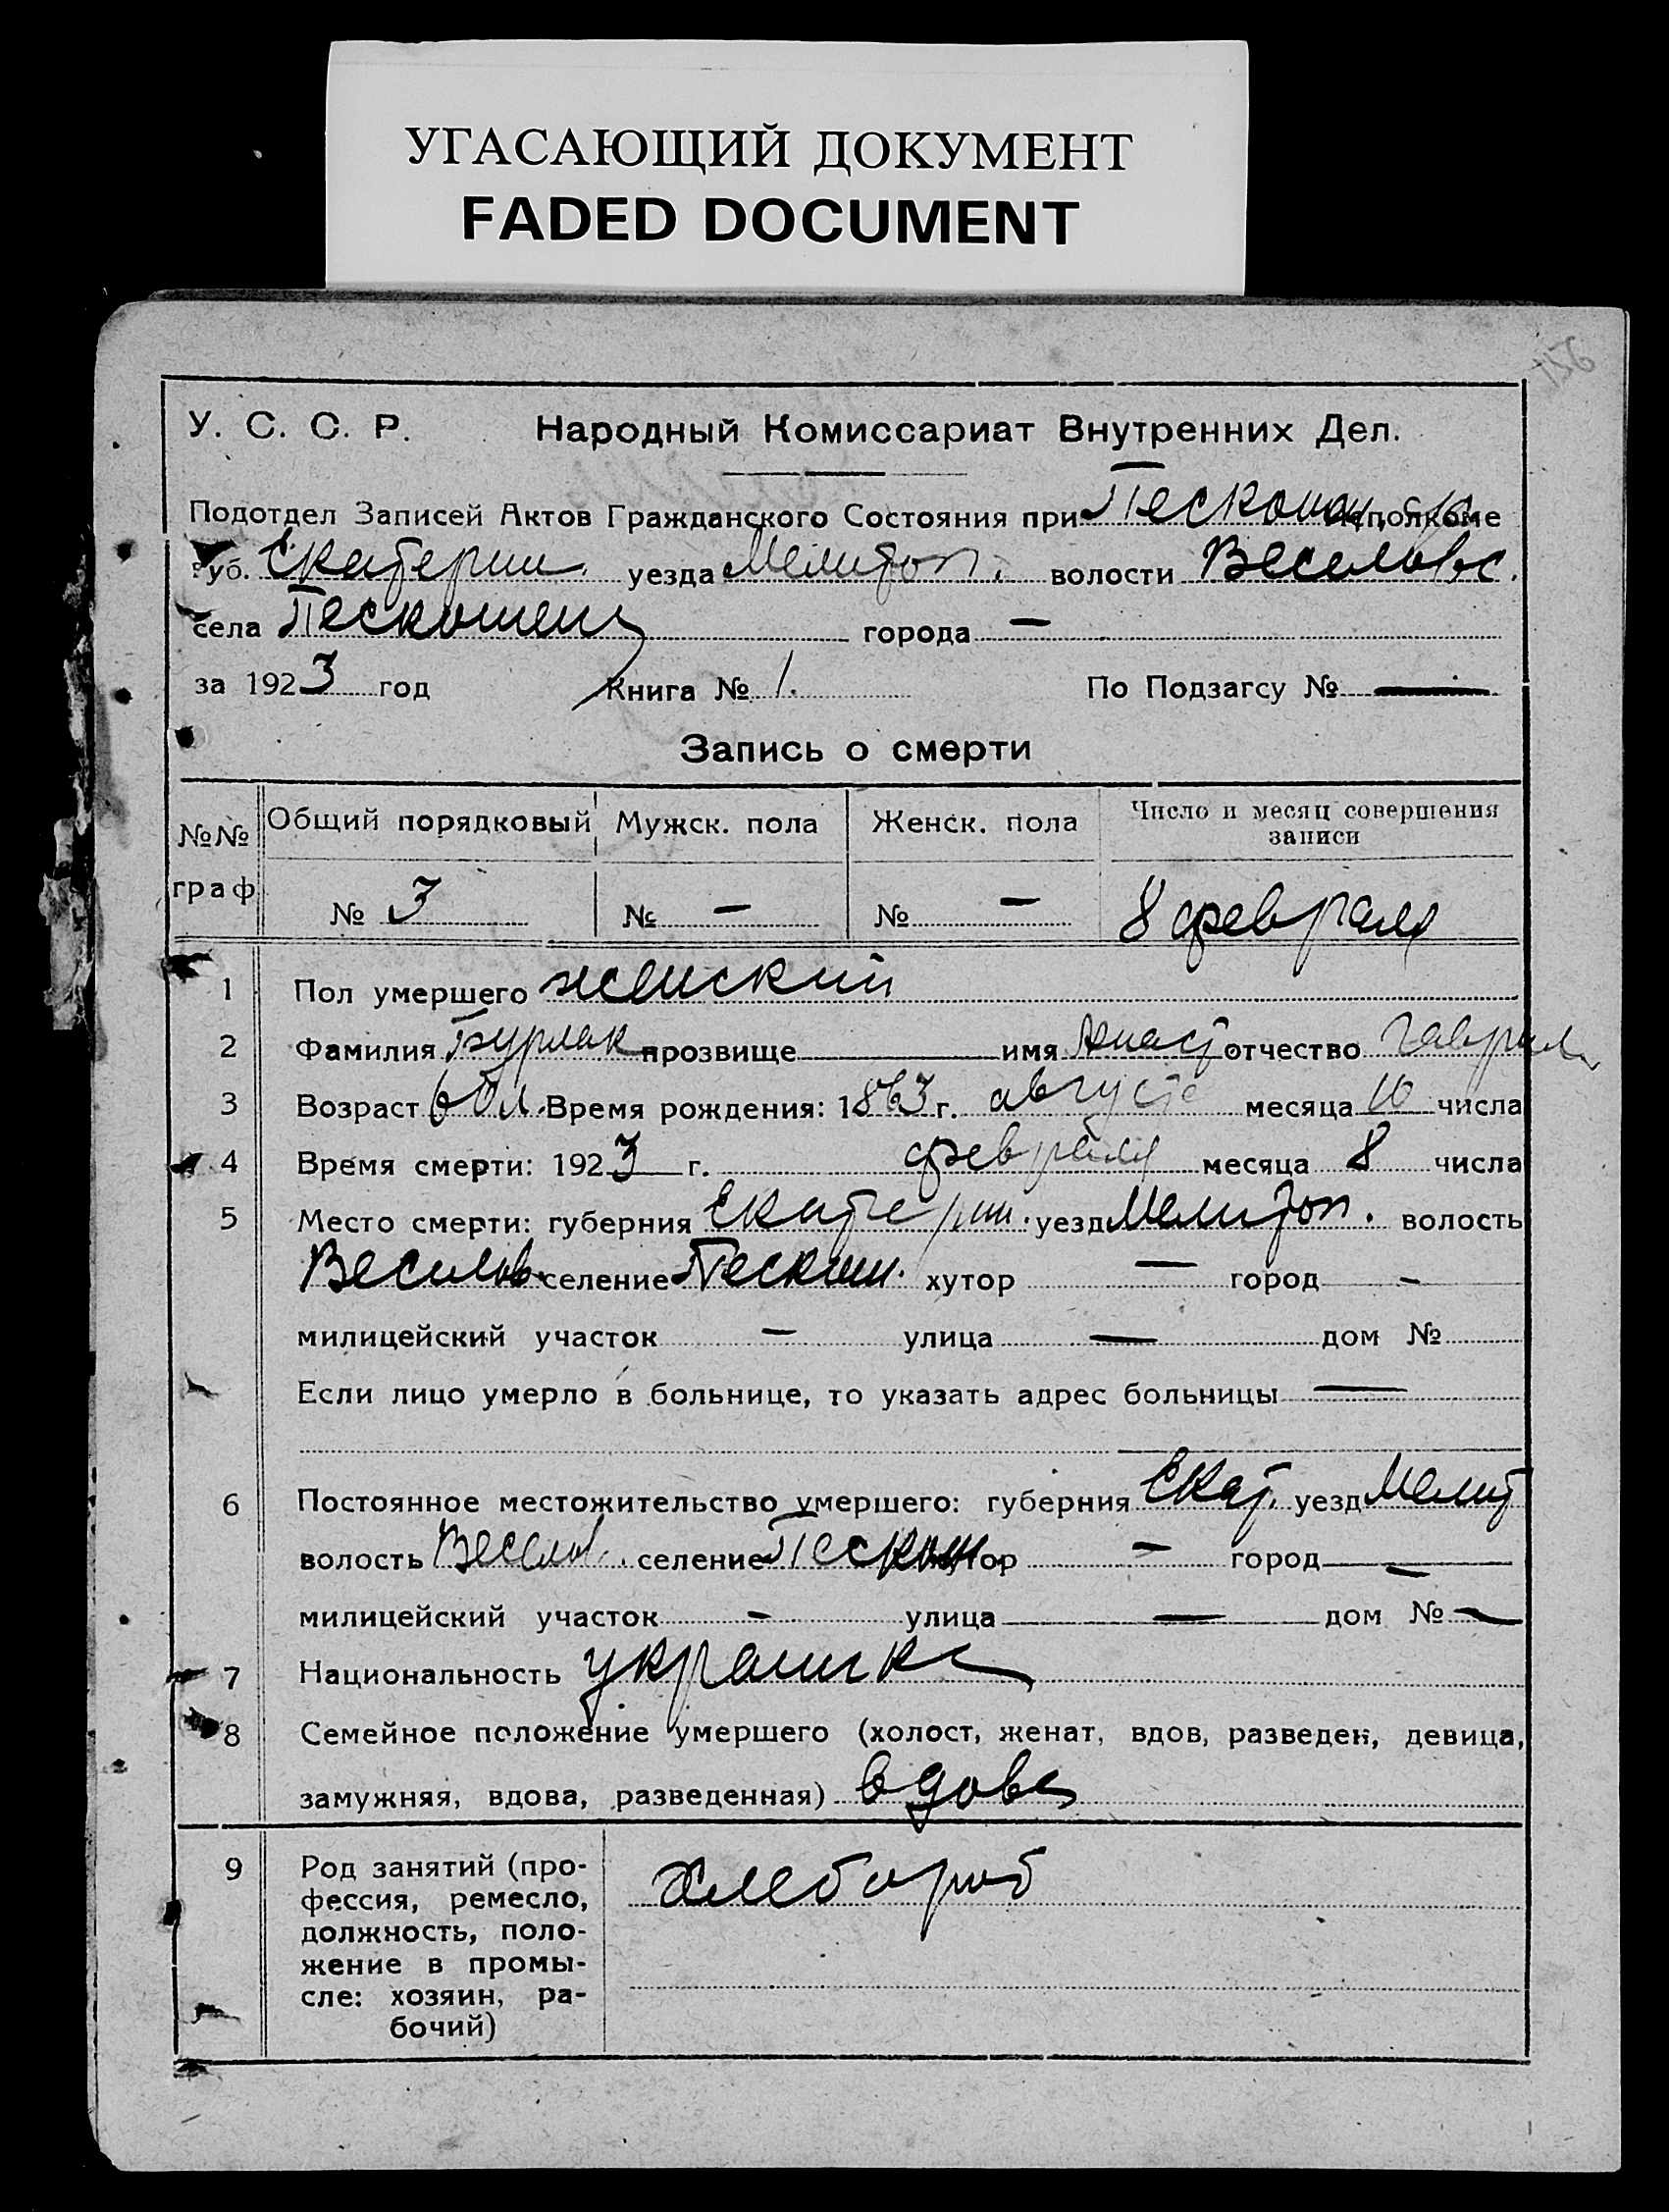 УГАСАЮЩИЙ ДОКУМЕНТ
FADED DOCUMENT
У. С. С. Р. Народный Комиссариат Внутренних Дел.
Подотдел Записей Актов Гражданского Состояния при исполкоме
Губ. Екатерин. уезда Мелитоп. волости Веселовс.
села Пескошены города —
за 1923 год Книга № 1. По Подзагсу № —
Запись о смерти
№№ граф Общий порядковый Мужск. пола Женск. пола Число и месяц совершения записи
№ 3 № — № — 8 февраля
1 Пол умершего женский
2 Фамилия Бурлак прозвище имя Анаст отчество Гаврил
3 Возраст 60 л. Время рождения: 1863 г. августа месяца 10 числа
4 Время смерти: 1923 г. февраля месяца 8 числа
5 Место смерти: губерния Екатерин. уезд Мелитоп. волость
Веселов. селение Пескош. хутор — город -
милицейский участок — улица — дом №
Если лицо умерло в больнице, то указать адрес больницы —
6 Постоянное местожительство умершего: губерния Екат. уезд Мелит
волость Веселов. селение Пескош. хутор — город —
милицейский участок - улица — дом № —
7 Национальность украинка
8 Семейное положение умершего (холост, женат, вдов, разведен, девица,
замужняя, вдова, разведенная) вдова
9 Род занятий (про- хлебороб
фессия, ремесло,
должность, поло-
жение в промы-
сле: хозяин, ра-
бочий)